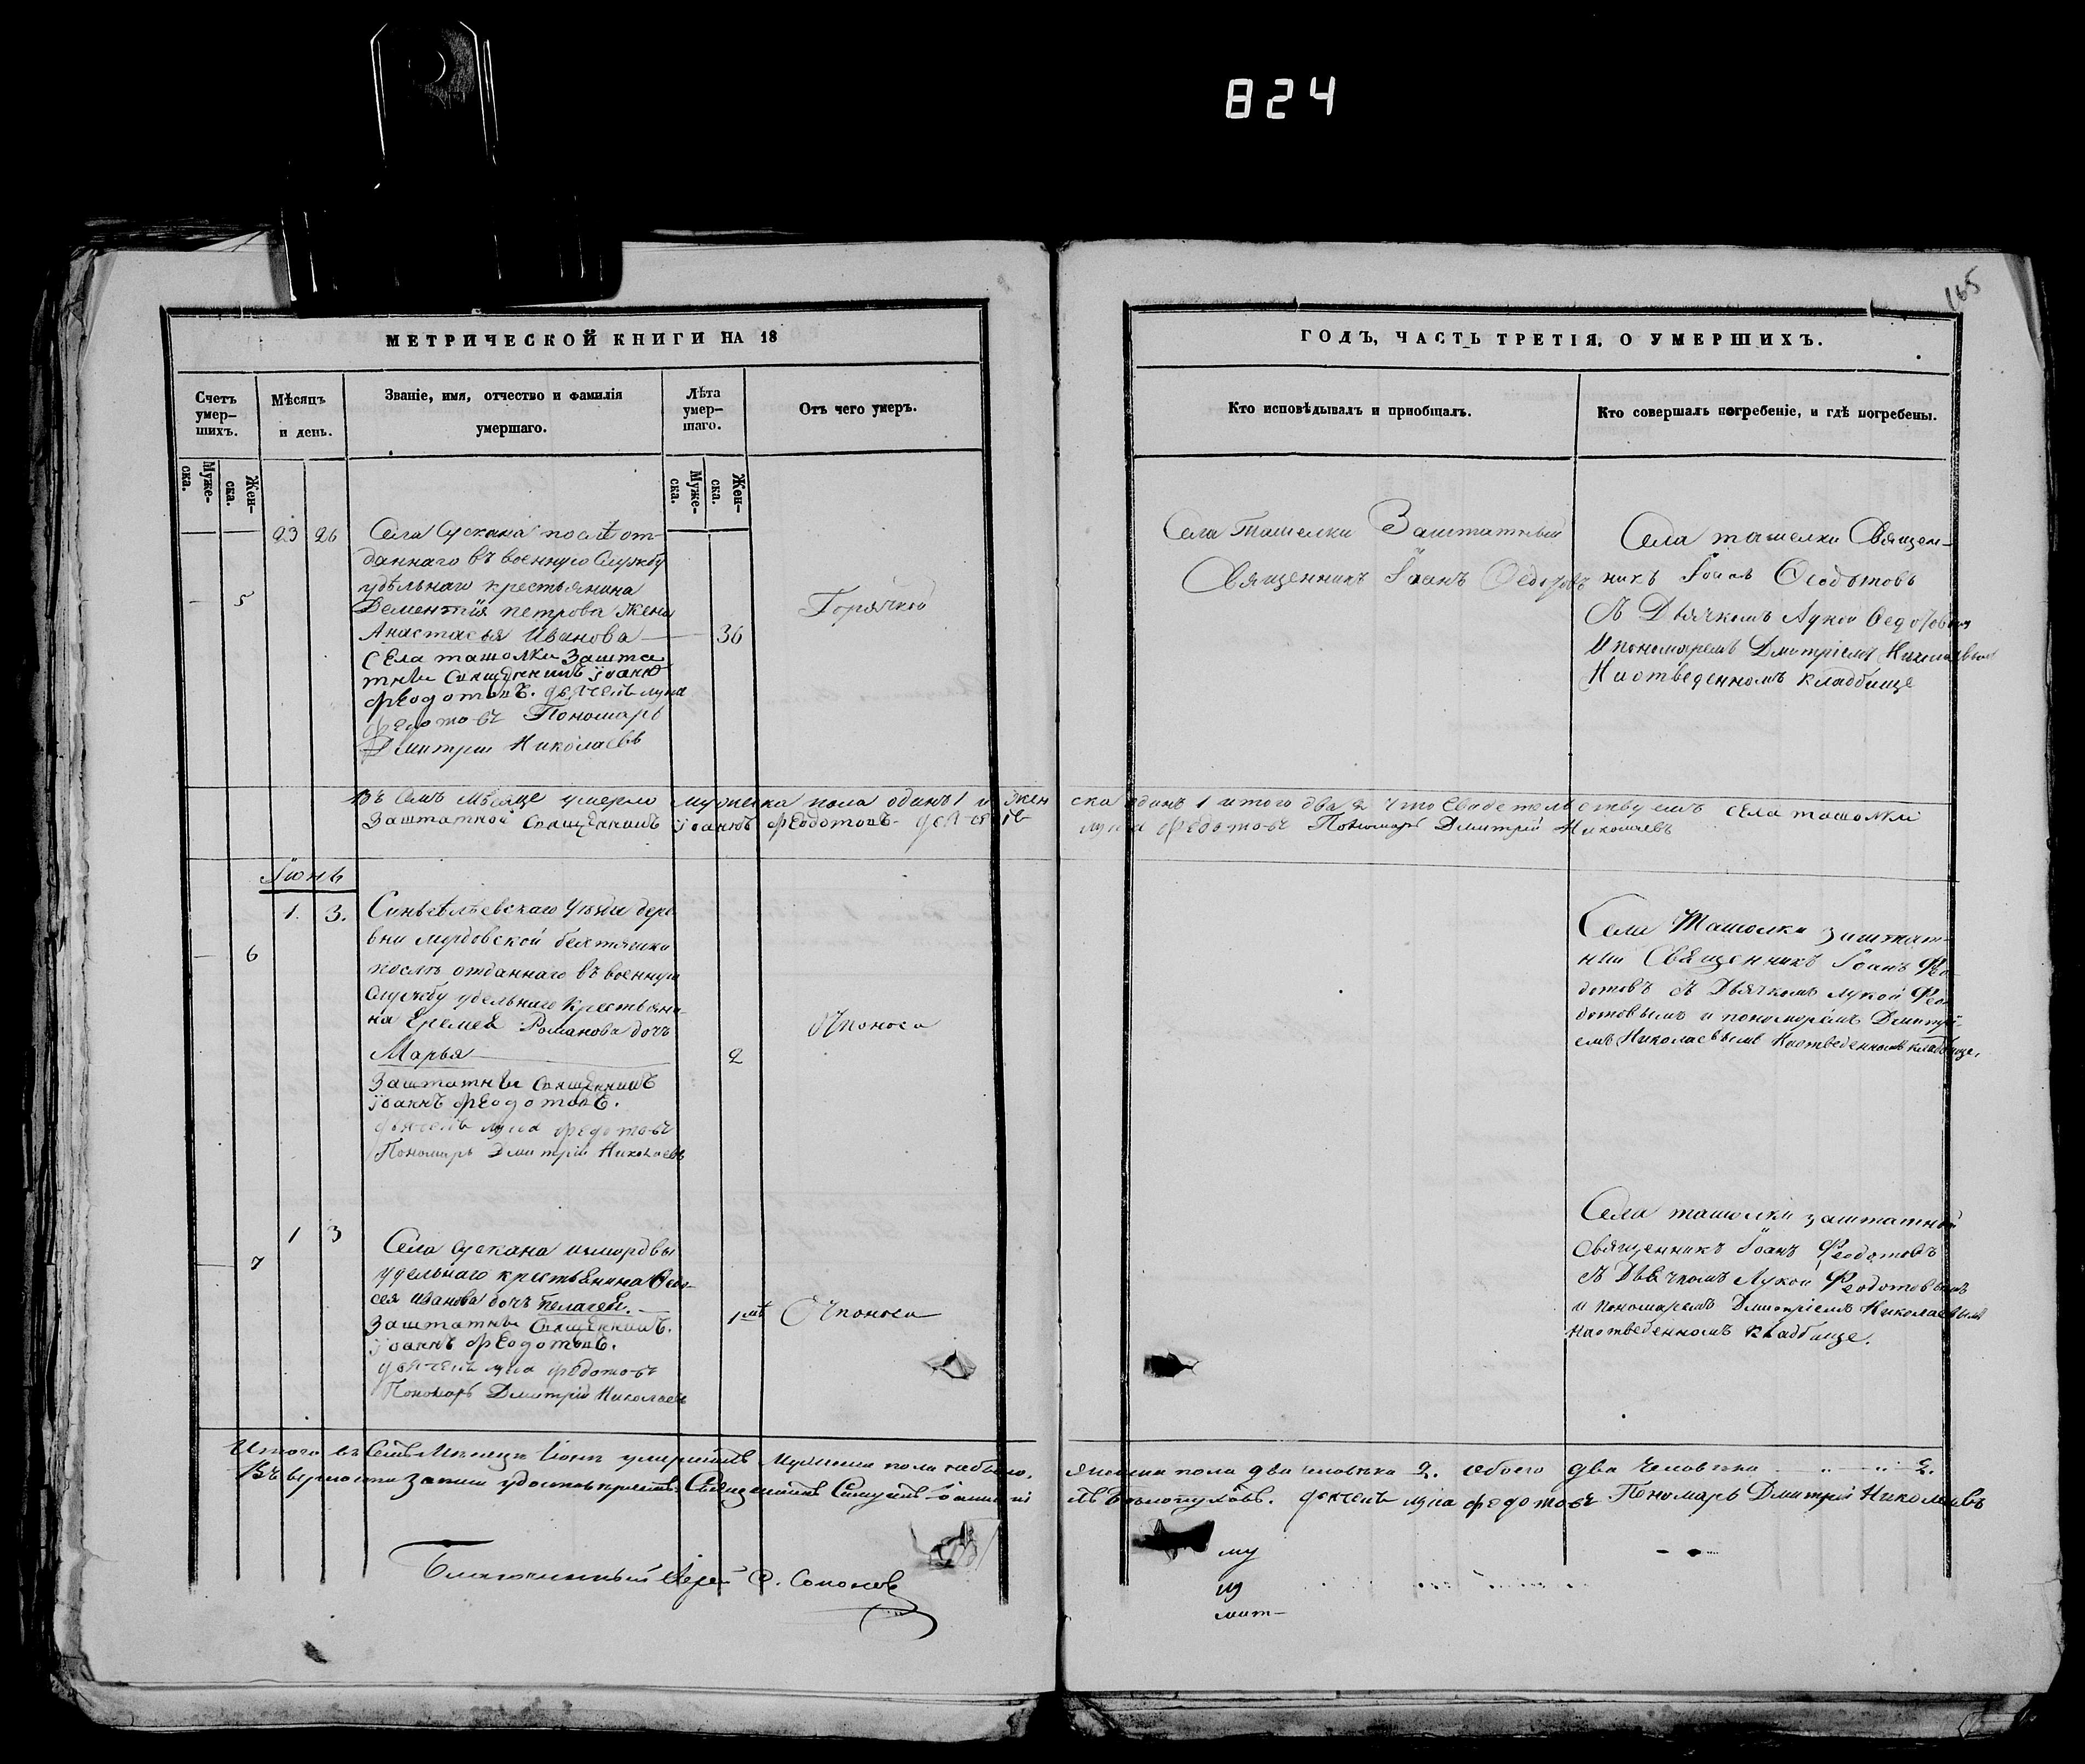 824
165
МЕТРИЧЕСКОЙ КНИГИ НА 18
ГОДЪ, ЧАСТЬ ТРЕТІЯ, О УМЕРШИХЪ.
Счетъ умер-
шихъ.
Мѣсяцъ
и день.
Званіе, имя, отчество и фамилія
умершаго.
Лѣта
умер-
шаго.
Отъ чего умеръ.
Кто исповѣдывалъ и пріобщалъ.
Кто совершалъ погребеніе, и гдѣ погребены.
Муже-
ска.
Жен-
ска.
Муже-
ска.
Жен-
ска.
5
23 26
Села Сускана послѣ от-
даннаго въ военную Службу
удѣльнаго крестьянина
Дементія петрова Жена
Анастасья Иванова 36
Горячкой
Села ташолки Зашта
тны Священникъ іоаннъ
феодотовъ. дьячекъ лука
федотовъ Пономарь
Дмитрій Николаевъ
Села Ташелки Заштатный
Священникъ Іоанъ Федотовъ
Села ташелки Священ-
никъ Іоанъ Феодотовъ
Съ Дьячкомъ Лукой Федотовым
И пономаремъ Дмитріемъ Николаевым
На отведенномъ кладбище
Въ Семъ Мѣсяце умерло мужеска пола одинъ 1 и жен ска одинъ 1 итого два 2 что Свидетельствуемъ села ташолки
Заштатной Священникъ іоаннъ феодотовъ дьячекъ лука федотовъ Пономарь Дмитрій Николаевъ
Іюнь
6
1. 3.
уезда дере-
вни мордовской бектяшки
послѣ отданнаго въ военную
Службу удельнаго Крестьяни-
на Еремея Романова дочь
Марья 2
От поноса
Заштатны Священникъ
іоаннъ феодотовъ.
дьячекъ лука федотовъ
Пономарь Дмитрій Николаевъ
Села Ташолки заштат-
ный Священникъ Іоанъ Фео-
дотовъ съ Дьячкомъ лукой Фео
дотовымъ и пономоремъ Дмитрі-
емъ Николаевымъ На отведенномъ кладбище.
7
1 3
Села Сускана измордвы
удельнаго крестьянина
Иванова дочь Пелагея.
От поноса
Заштатны Священникъ.
іоаннъ феодотовъ.
дьячекъ лука федотовъ
Пономарь Дмитрій Николаевъ
Села ташолки заштатной
Священникъ Іоанъ Феодотовъ
съ Дьячкомъ Лукой Феодотовымъ
и пономаремъ Дмитріемъ Николаевымъ
На отведенномъ кладбище.
Итого въ Семъ Месяцъ Іюнь умершихъ Мужеска пола небыло. женска пола два человека 2. обоего два человека 2.
Въ верности записи Священникъ дьячекъ лука федотовъ Пономарь Дмитрій Николаевъ
Благочинный Іерей